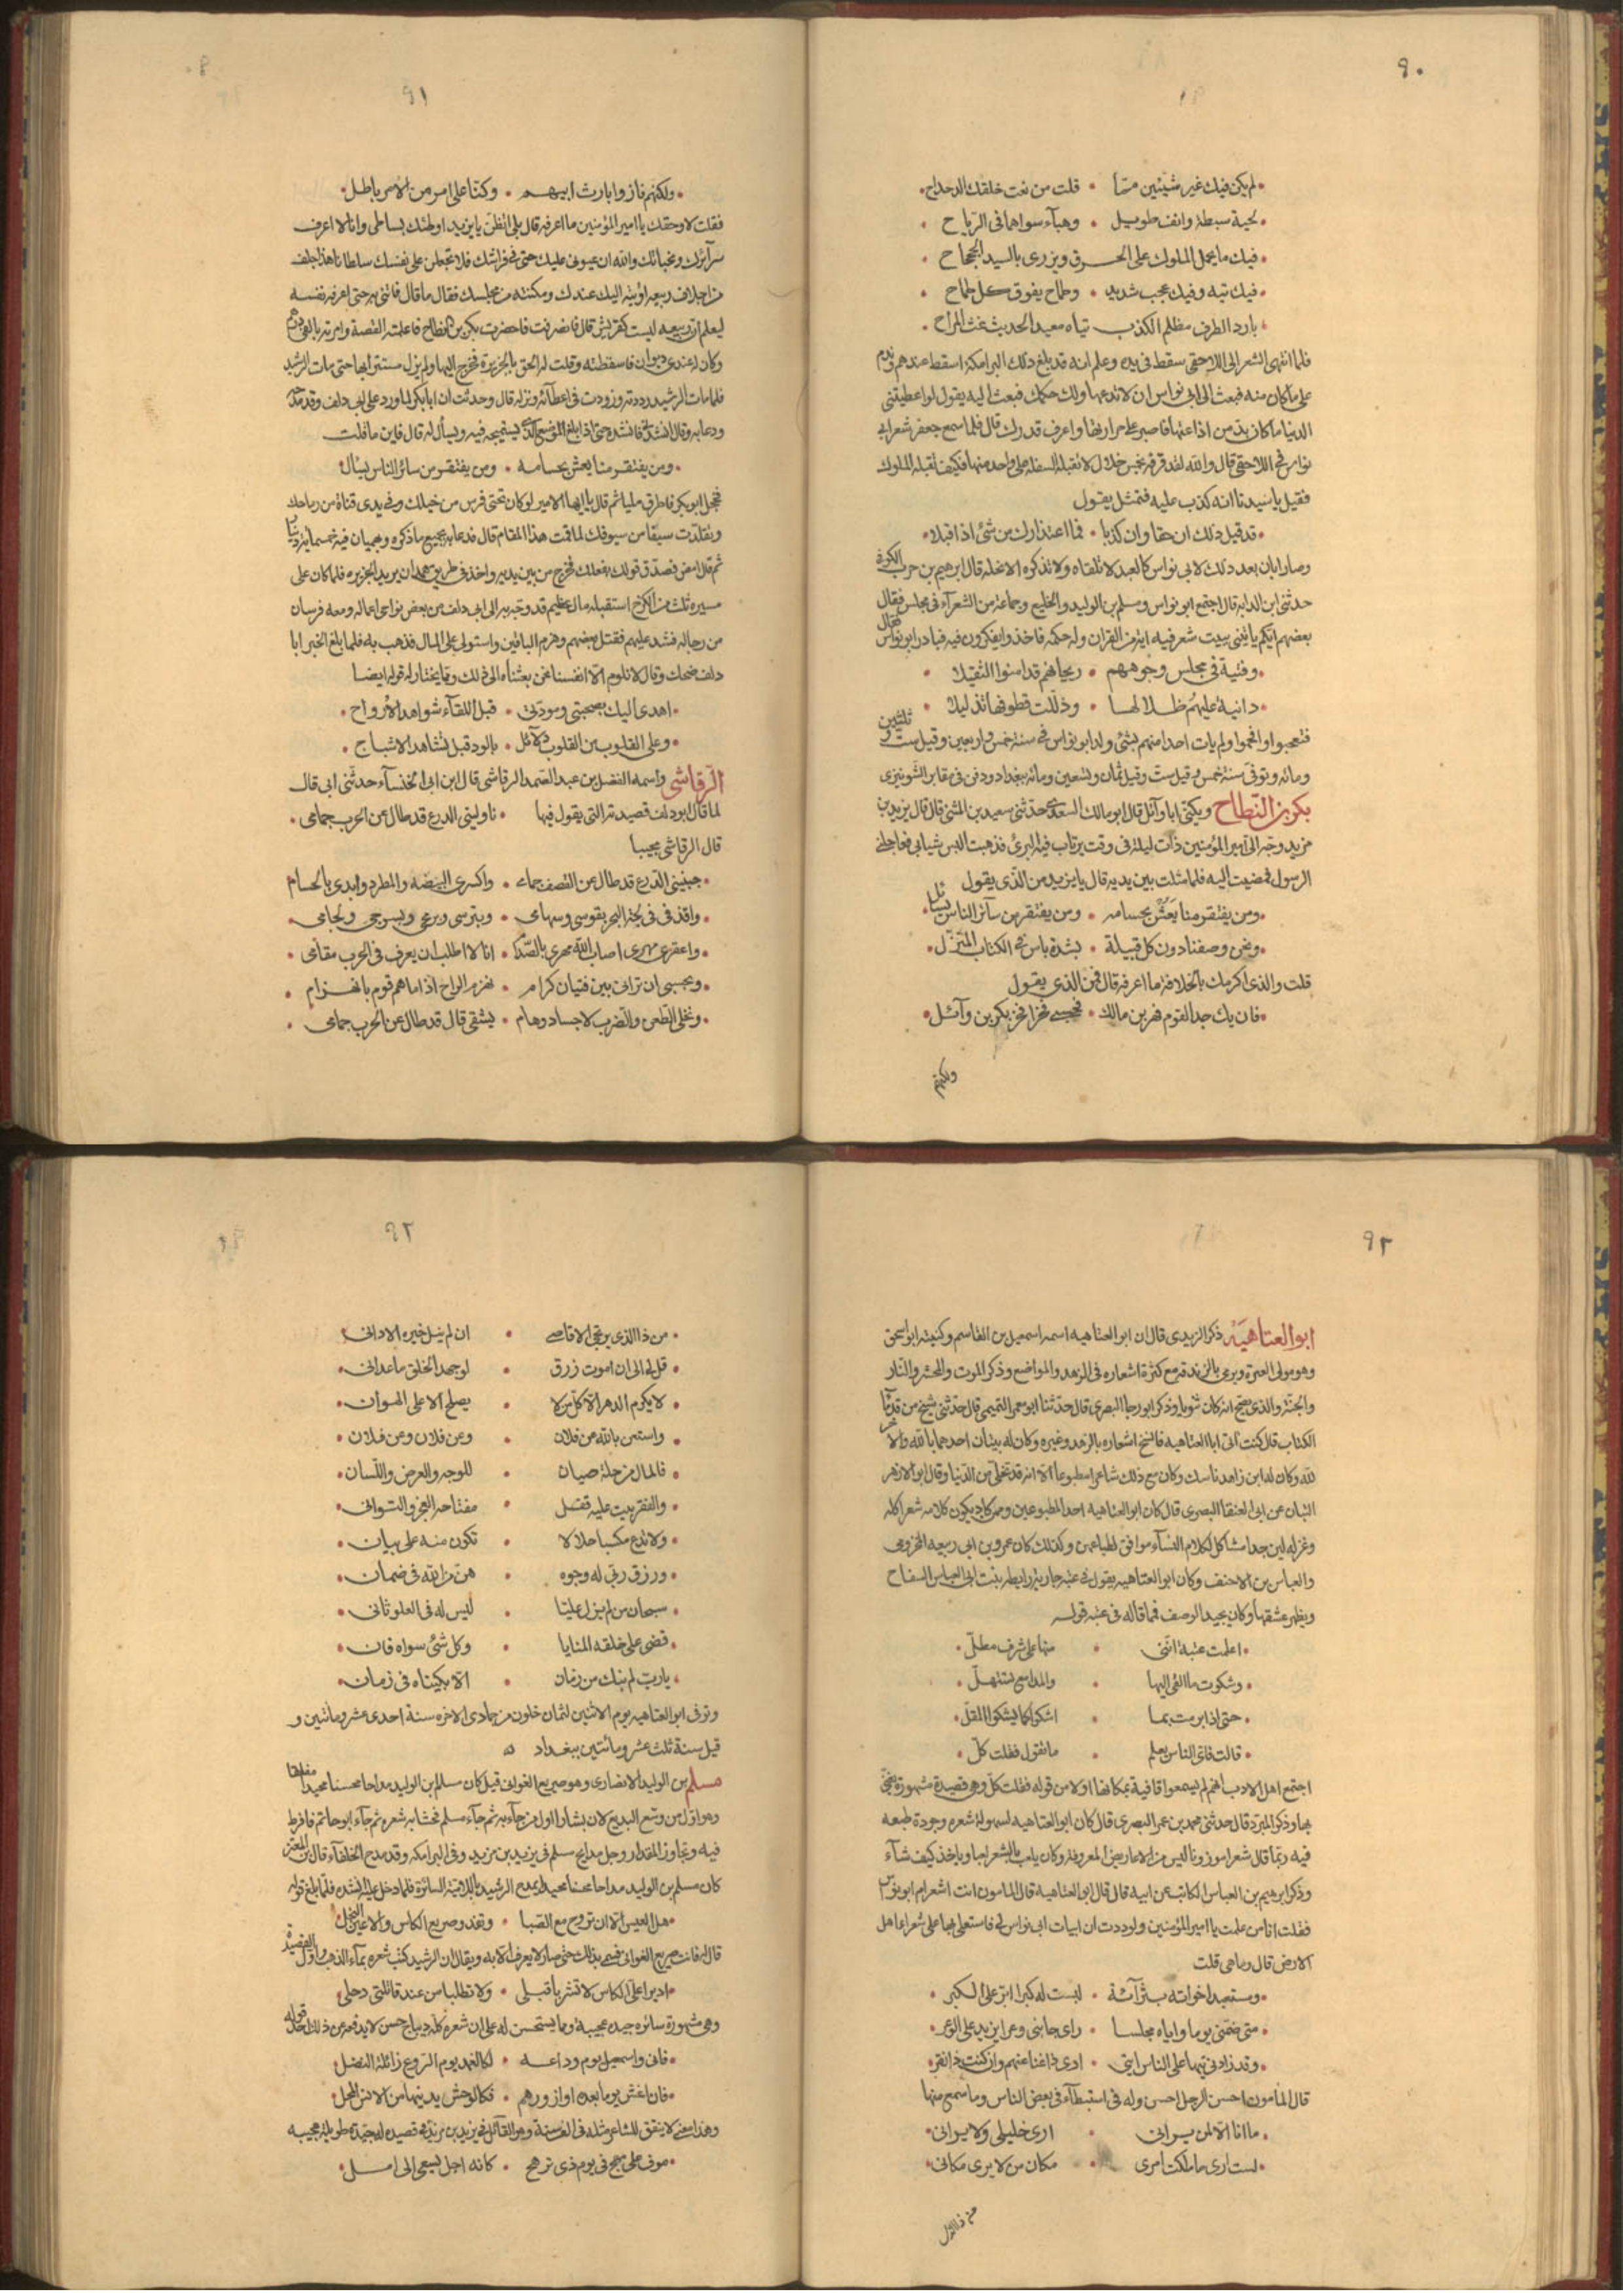 ٩٠
لم يكن فيك غير شيئين مما • قلت من نعت خلقك الدحداح
لحية سبطة وانف طويل • وهباء سواهما في الرياح
فيك ما يحمل الملوك على الخرق ويزري بالسيد الجحجاح
فيك تيه وفيك عجب شديد • وطماح يفوق كل طماح
بارد الطرف مظلم الكذب تياه معيد الحديث غث المزاح
فلما انتهى الشعر الى اللاحقي سقط في يده وعلم انه قد بلغ ذلك البرامكة اسقط عندهم وندم
على ما كان منه فبعث الى ابي نواس ان لا تدعها ولك حكمك فبعث اليه يقول لو اعطيتني
الدنيا ما كان بد من اذاعتها فاصبر على مرارتها واعرف قدرك قال فلما سمع جعفر شعر ابي
نواس في اللاحقي قال والله لقد قرفه بخمس خلال لا تقبله السفلة على واحدة منها فكيف تقبله الملوك
فقيل يا سيدنا انه كذب عليه فتمثل يقول
قد قيل ذلك ان حقا وان كذبا • فما اعتذارك من شئ اذا قيلا
وصار ابان بعد ذلك لابي نواس كالعبد لا تلقاه ولا تذكره الا نحله قال ابرهيم بن حرب الكوفي
حدثني ابن الداية قال اجتمع ابو نواس ومسلم بن الوليد والخليع وجماعة من الشعراء في مجلس فقال
بعضهم ايكم ياتيني ببيت شعر فيه اية من القران وله حكمه فاخذوا يفكرون فيه فبادر ابو نواس فقال
وفتية في مجلس وجوههم • ريحانهم قد امنوا الثقيلا
دانية عليهم ظلالها • وذللت قطوفها تذليلا
فتعجبوا وافحموا ولم يات احد منهم بشئ ولد ابو نواس في سنة خمس واربعين وقيل ست وثلثين
ومائه وتوفى سنة خمس وقيل ست وقيل ثمان وتسعين ومائه ببغداد ودفن في مقابر الشونيزي
بكر بن النطاح ويكنى ابا وائل قال ابو مالك السعدي حدثني سعيد بن المثنى قال قال يزيد بن
مزيد وجه الى امير المؤمنين ذات ليلة في وقت يرتاب فيه البرئ فذهبت البس ثيابي فعاجلني
الرسول فمضيت اليه فلما مثلت بين يديه قال يا يزيد من الذي يقول
ومن يفتقر منا يعش بحسامه • ومن يفتقر من سائر الناس يسأل
ونحن وصفنا دون كل قبيلة • بشدة باس في الكتاب المنزل
قلت والذي اكرمك بالخلافة ما اعرفه قال فمن الذي يقول
فان يك جد القوم فهر بن مالك • فحسبي فخرا فخر بكر بن وائل
ولكنهم
٩١
ولكنهم فازوا بارث ابيهم • وكنا على امر من الامر باطل
فقلت لا وحقك يا امير المؤمنين ما اعرفه قال بلى اتظن يا يزيد اوطئك بساطي وانا لا اعرف
سرآئرك ومخبآتك والله ان عيوني عليك حتى في فراشك فلا تجعلن على نفسك سلطانا هذا جلف
من اجلاف ربيعه اويته اليك عندك ومكنته من مجلسك فقال ما قال فائتني به حتى اعرفه نفسه
ليعلم ان ربيعه ليست كقريش قال فانصرفت فاحضرت بكر بن النطاح فاعلمته القصة وامرته بالفي درهم
وكان له عندي ديوان فاسقطته وقلت له الحق بالجزيرة فخرج اليها ولم يزل مستترا بها حتى مات الرشيد
فلما مات الرشيد رددته وزودت في اعطآئه ونزله قال وحدثت ان ابا بكر لما ورد على ابي دلف وقد مدحه
ودعا به وقال انشدني فانشده حتى اذا بلغ الموضع الذي يستميحه فيه ويسأل له قال فاين ما قلت
ومن يفتقر منا يعش بحسامه • ومن يفتقر من سائر الناس يسأل
فخجل ابو بكر فاطرق مليا ثم قال يا ايها الامير لو كان تحتي فرس من خيلك وفي يدي قناة من رماحك
وتقلدت سيفا من سيوفك لما قمت هذا المقام قال فدعا له بجميع ما ذكره وهميان فيه خمسماية دينار
ثم قال امض فصدق قولك بفعلك فخرج من بين يديه واخذ في طريق همدان يريد الجزيره فلما كان على
مسيره ثلث من الكرخ استقبله مال عظيم قد وجه به الى ابي دلف من بعض نواحي اعماله ومعه فرسان
من رجاله فشد عليهم فقتل بعضهم وهزم الباقين واستولى على المال فذهب به فلما بلغ الخبر ابا
دلف ضحك وقال لا تلوم الا انفسنا نحن بعثناه الى ذلك ومما يختار له قوله ايضا
اهدى اليك بصحبتي ومودتي • قبل اللقآء شواهد الارواح
وعلى القلوب من القلوب دلائل • بالود قبل تشاهد الاشباح
الرقاشي واسمه الفضل بن عبد الصمد الرقاشي قال ابن ابي الخنساء حدثني ابي قال
لما قال ابو دلف قصيدته التي يقول فيها • ناوليني الدرع قد طال عن الحرب جمامي
قال الرقاشي مجيبا
جنبيني الدرع قد طال عن القصف جمامي • واكسري البيضه والمطرد وابدي بالحسام
واقذفي في لجة البحر بقوسي وسهامي • وبترسي وبرمحي وبسرجي ولجامي
واعقري مهري اصاب الله مهري بالصدام • انا لا اطلب ان يعرف في الحرب مقامي
وبحسبي ان تراني بين فتيان كرام • نهزم الراح اذا ما هم قوم بانهزام
ونخلي الطعن والضرب لاجساد وهام • يشتفي قال قد طال عن الحرب جمامي
٩٢
ابو العتاهية ذكر الزبيدي قال ان ابو العتاهيه اسمه اسمعيل بن القاسم وكنيته ابو اسحق
وهو مولى العنزة ويرمى بالزندقه مع كثرة اشعاره في الزهد والمواضع وذكر الموت والحشر والنار
والجنة والذي يصح انه كان ثنويا وذكر ابو رجا البصري قال حدثنا ابو عمر التميمي قال حدثني شيخ من قدمآء
الكتاب قال كنت آتي ابا العتاهيه فانسخ اشعاره بالزهد وغيره وكان له بنتان احدهما بالله والاخرى
لله وكان له ابن زاهد ناسك وكان مع ذلك شاعرا مطبوعا الا انه قد تخلى من الدنيا وقال ابو الازهر
البنان عن ابي العنقا البصري قال كان ابو العتاهيه احد المطبوعين وممن كاد يكون كلامه شعرا كله
وغزله لين جدا مشاكل لكلام النسآء موافق لطباعهن وكذلك كان عمرو بن ابي ربيعه المخزومي
والعباس بن الاحنف وكان ابو العتاهيه يقول في عتبه جارية رايطه بنت ابي العباس السفاح
ويظهر عشقها وكان يجيد الوصف فمما قاله في عتبه قوله
اعلمت عتبة انني • منها على شرف مطل
وشكوت ما القى اليها • والمدامع تستهل
حتى اذا برمت بما • اشكو كما يشكو المقل
قالت فاي الناس يعلم • ما تقول فقلت كل
اجتمع اهل الادب انهم لم يسمعوا قافية بمكانها اولا من قوله فقلت كل وهي قصيدة مشهورة يغنى
بها وذكر المبرد قال حدثني محمد بن عمر البصري قال كان ابو العتاهيه لسهولة شعره وجودة طبعه
فيه ربما قال شعرا موزونا ليس من الاعاريض المعروفة وكان يلعب بالشعر لعبا وياخذ كيف شآء
وذكر ابرهيم بن العباس الكاتب عن ابيه قال قال ابو العتاهية قال المامون انت اشعر ام ابو نواس
فقلت انا من علمت يا امير المؤمنين ولوددت ان ابيات ابي نواس لي فاستعلي بها على شعراء اهل
الارض قال وما هي قلت
ومستعبد اخوانه بثرآئه • لبست له كبرا ابر على الكبر
متى ضمني يوما واياه مجلسا • راى جانبي وعرا يزيد على الوعر
وقد زادني تيها على الناس انني • ارى ذا غنا عنهم وان كنت ذا فقر
قال المامون احسن الرجل احسن وله في استبطآء في بعض الناس وما سمع منها
ما انا الا لمن يراني • ارى خليلي ولا يراني
لست ارى ما ملكت امري • مكان من لا يرى مكاني
من ذا الذي
٩٣
من ذا الذي يرتجي الاقاصي • ان لم ينل خيره الاداني
قل لي الى ان اموت رزق • لو جهد الخلق ما عداني
لا يكرم الدهر الا كل من لا • يصلح الا على الهوان
واستغن بالله عن فلان • وعن فلان وعن فلان
فالمال من حله صيان • للوجه والعرض واللسان
والفقر بيت عليه قفل • مفتاحه العجز والتواني
ولا تدع مكسبا حلالا • تكون منه على بيان
ورزق ربي له وجوه • هن من الله في ضمان
سبحان من لم يزل عليا • ليس له في العلو ثاني
قضى على خلقه المنايا • وكل شئ سواه فان
يا رب لم نبك من زمان • الا بكيناه في زمان
وتوفى ابو العتاهيه يوم الاثنين لثمان خلون من جمادى الاخره سنة احدى عشر ومائتين و
قيل سنة ثلث عشر ومائتين ببغداد
مسلم بن الوليد الانصاري وهو صريع الغواني قيل كان مسلم بن الوليد مداحا محسنا مجيدا مفلقا
وهو اول من وسع البديع لان بشارا اول من جآء به ثم جآء مسلم فحشا به شعره ثم جآء ابو حاتم فافرط
فيه وتجاوز المقدار وجل مدايح مسلم في يزيد بن مزيد وفي البرامكه وقد مدح الخلفآء قال ابن المعتز
كان مسلم بن الوليد مداحا محسنا مجيدا يمدح الرشيد باللامية السائرة فلما دخل عليه انشده فلما بلغ قوله
هل العيش الا ان تروح مع الصبا • وتغدو صريع الكاس والاعين النجل
قال له انت صريع الغواني فسمي بذلك حتى صار لا يعرف الا به ويقال ان الرشيد كتب شعره بمآء الذهب واول القصيدة
اديرا علي الكاس لا تشربا قبلي • ولا تطلبا من عند قاتلتي ذحلي
وهي مشهورة سائره جيده عجيبة ومما يستحسن له على ان شعره كله ديباج حسن لا يدفعه عن ذلك احد قوله
فاني واسمعيل يوم وداعه • لكالغمد يوم الروع زائله النصل
فان اغش يوما بعده او ازورهم • فكالوحش يدنيها من الانس المحل
وهذا معنى لا يتفق للشاعر مثله في الف سنة وهو القائل في يزيد بن مزيد في قصيده له جيدة طويلة عجيبه
موف على مهج في يوم ذي رهج • كانه اجل يسعى الى امل